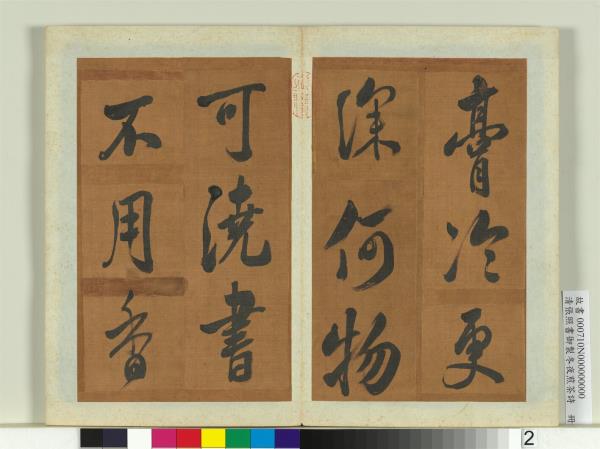 膏冷更
深何物
可澆書
不用香
故書 000710N000000000
清張照書御製冬夜煎茶詩 冊
2